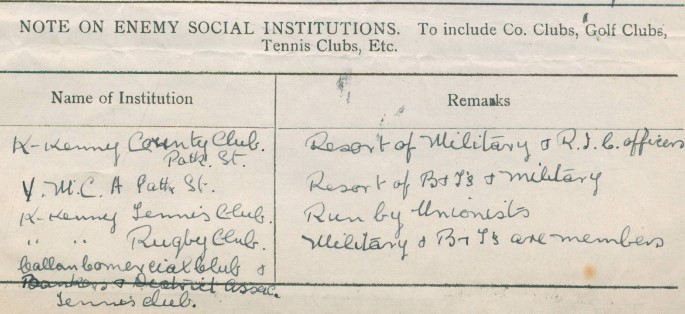 NOTE ON ENEMY SOCIAL INSTITUTIONS. To include Co. Clubs, Golf Clubs,
Tennis Clubs, Etc.
Name of Institution
Remarks
K-Kenny County Club.
Patk. St.
Resort of Military & R.I.C. officers
Y.M.C.A Patk St.
Resort of B&T's & military
K-Kenny Tennis Club.
Run by Unionists
" " Rugby Club.
Military & B&T's are members
Callan Comercial Club &
Bankers & District Assoc.
Tennis club.